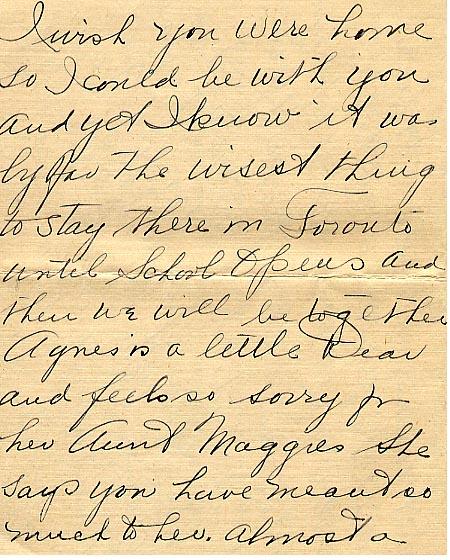 I wish you were home
so I could be with you
and yet I know it was
by far the wisest thing
to stay there in Toronto
until School Opens and
then we will be together
Agnes is a little Dear
and feels so sorry for
her Aunt Maggies She
says you have meant so
much to her. Almost a